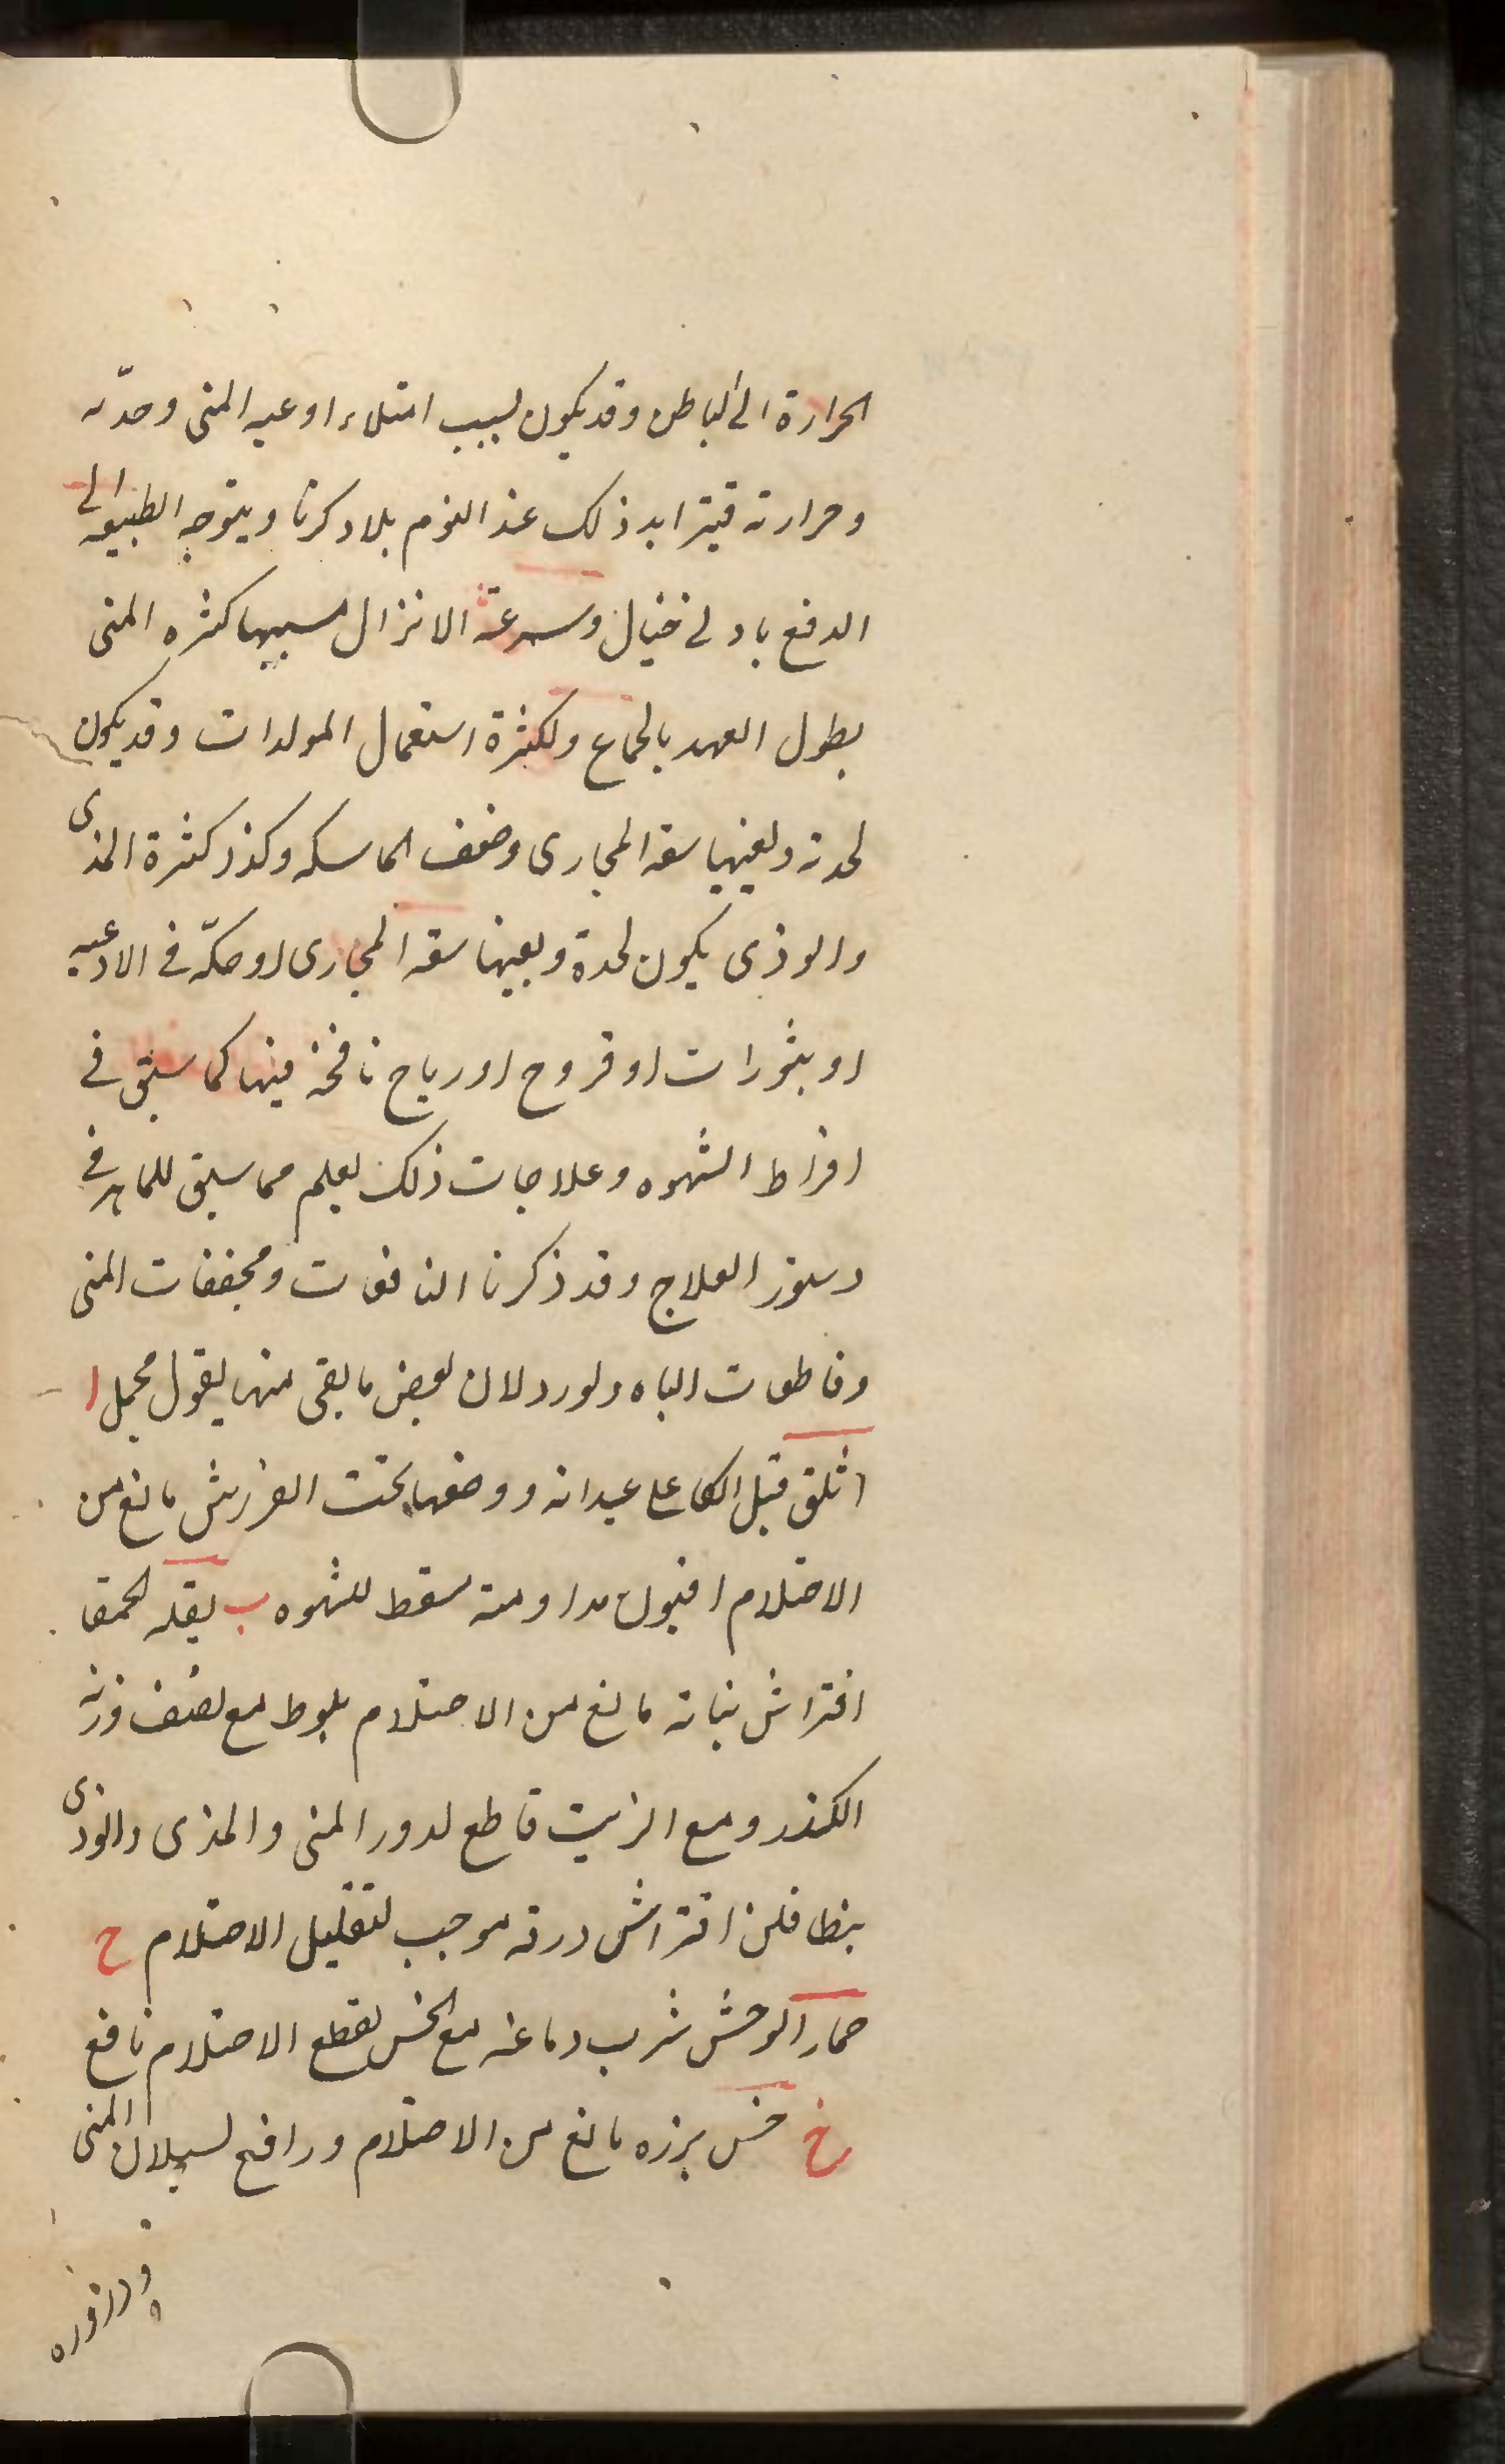 الحرارة الى الباطن وقد يكون لسبب امتلاء اوعيه المنى وحدّته
وحرارته فيتزايد ذلك عند النوم بلا ذكرنا ويتوجه الطبيعه الى
الدفع بادنى خيال وسرعة الانزال سببها كثره المنى
بطول العهد بالجماع ولكثرة استعمال المولدات وقد يكون
لحدته ويعينها سعة المجارى وضعف الماسكه وكذا كثرة المذى
والوذى يكون لحدة ويعينها سعة المجارى او حكّه فى الاوعيه
او بثورات او قروح او رياح نافخة فيها كما سبق فى
افراط الشهوه وعلاجات ذلك يعلم مما سبق للماهر فى
دستور العلاج وقد ذكرنا النافعات ومجففات المنى
وقاطعات الباه ولنورد الان بعض ما بقى منها بقول مجمل ا
اثلق قبل عيدانه ووضعها تحت الفراش مانع من
الاحتلام افيون مداومته مسقط للشهوه ب بقله الحمقا
افتراش نباته مانع من الاحتلام بلوط مع نصف وزنه
الكندر ومع الزيت قاطع لدرور المنى والمذى والوذى
بنطافلن افتراش ورقه موجب لتقليل الاحتلام ح
حمار الوحش شرب دماغه مع الخس لقطع الاحتلام نافع
خ خس بزره مانع من الاحتلام ورافع لسيلان المنى